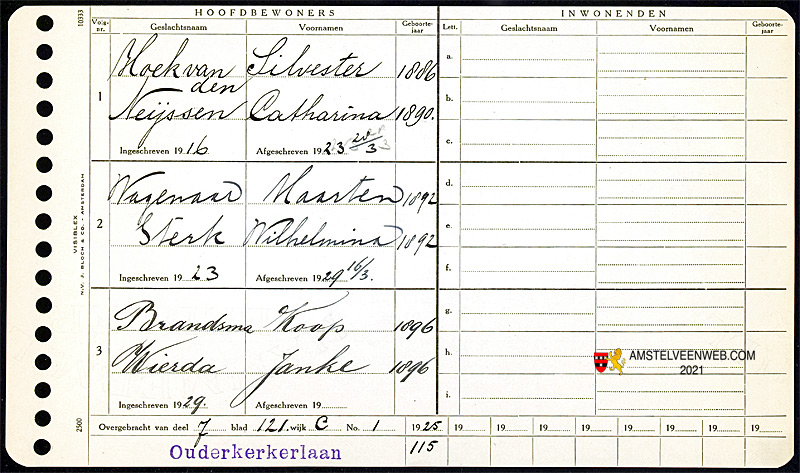 HOOFDBEWONERS
INWONENDEN
Volg-nr. Geslachtsnaam Voornamen Geboorte-jaar Lett. Geslachtsnaam Voornamen Geboorte-jaar
10333
1
Hoek van den Silvester 1886
Neijssen Catharina 1890.
Ingeschreven 1916 Afgeschreven 1923 20/3
2
Wagenaar Maarten 1892
Sterk Wilhelmina 1892
Ingeschreven 1923 Afgeschreven 1929 16/3.
3
Brandsma Koop 1896
Wierda Janke 1896
Ingeschreven 1929. Afgeschreven 19
a.
b.
c.
d.
e.
f.
g.
h.
i.
VISIBLEX
N.V. J. BLOCH & CO. - AMSTERDAM
2500
AMSTELVEENWEB.COM
2021
Overgebracht van deel 7 blad 121. wijk C No. 1 1925 19 19 19 19 19 19 19
Ouderkerkerlaan 115